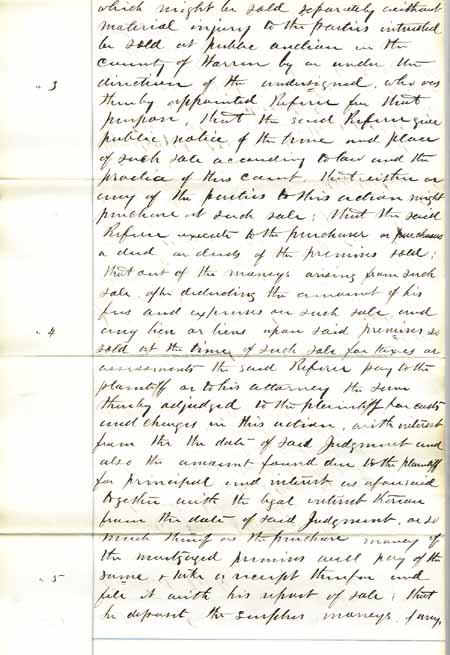 which might be sold separately without
material injury to the parties interested
be sold at public auction in the
County of Warren by or under the
" 3
direction of the undersigned, who was
thereby appointed Referee for that
purpose, that the said Referee give
public notice of the time and place
of such sale according to law and the
practice of this court, that either or
any of the parties to this action might
purchase at such sale; that the said
Referee execute to the purchaser or purchasers
a deed or deeds of the premises sold;
that out of the moneys arising from such
sale, after deducting the amount of his
fees and expenses on such sale, and
" 4
any lien or liens upon said premises so
sold at the time of such sale for taxes or
assessments the said Referee pay to the
plaintiff or to his attorney the sum
thereby adjudged to the plaintiff for costs
and charges in this action, with interest
from the the date of said Judgment and
also the amount found due to the plaintiff
for principal and interest as aforesaid
together with the legal interest thereon
from the date of said Judgment, or so
much thereof as the purchase money of
the mortgaged premises will pay of the
" 5
same & take a receipt therefor and
file it with his report of sale; that
he deposit the surplus moneys, if any,